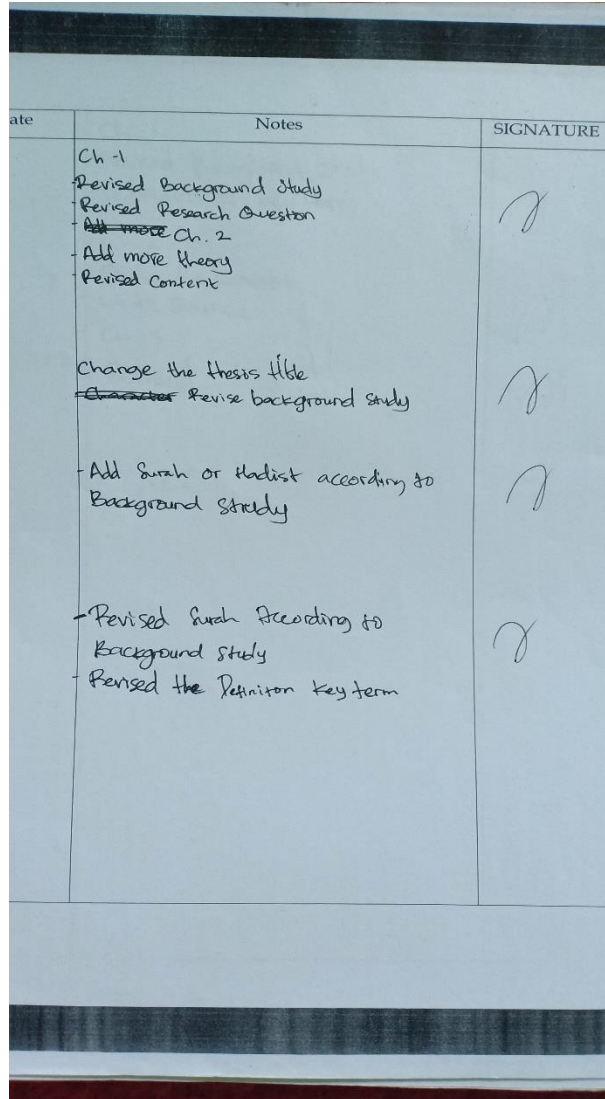 ate Notes SIGNATURE
Ch-1
- Revised Background Study
- Revised Research Question
- Add more Ch. 2
- Add more theory
- Revised Content
Change the thesis title
Character Revise background study
- Add Surah or Hadist according to
Background study
- Revised Surah According to
Background study
- Revised the Definiton key term